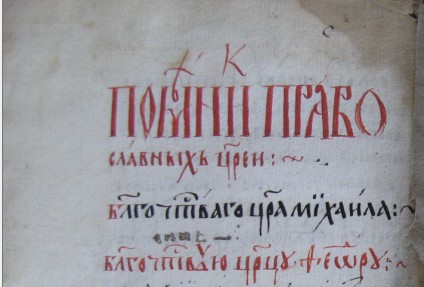 К
ПОМѦНИ ПРАВО
славныхъ цр҃ей:~
Бл҃гочт҃иваго цр҃ѧ мїхаила:~
Бл҃гочт҃ивꙋю цр҃цꙋ ѳеѡрꙋ: